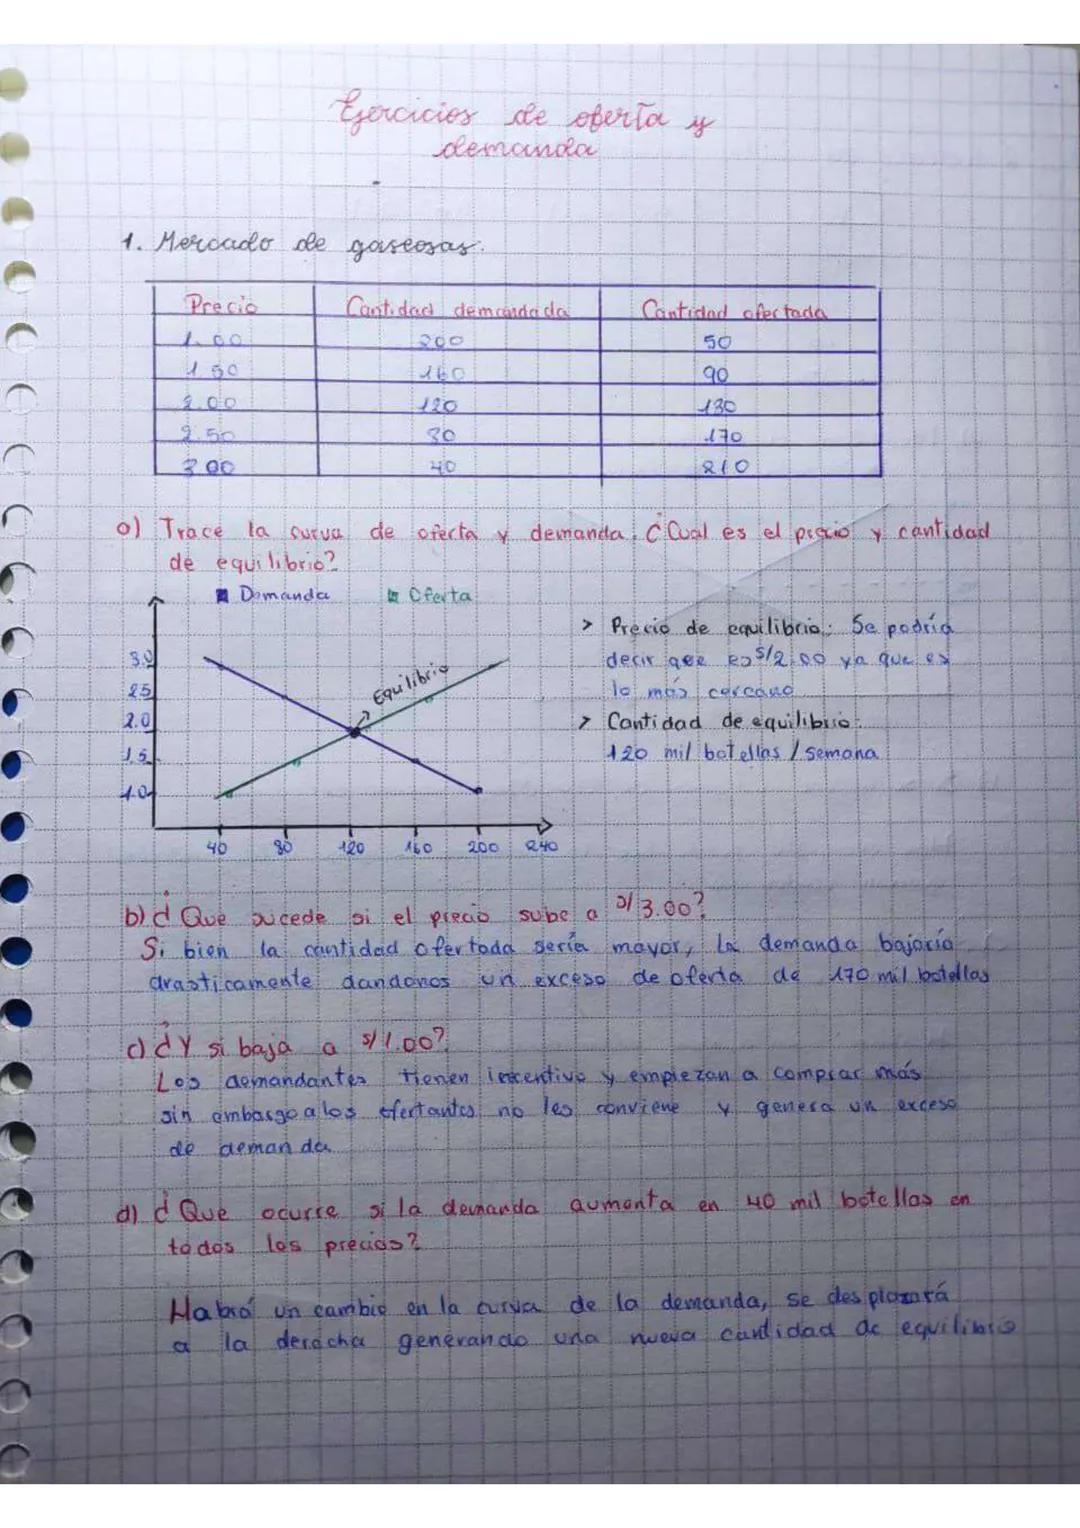 Ejercicios de oferta y
demanda
1. Mercado de gaseosas.
Precio Cantidad demandada Cantidad ofertada
1.00 200 50
1.50 160 90
2.00 120 130
2.50 80 170
3.00 40 210
a) Trace la curva de oferta y demanda. ¿Cual es el precio y cantidad
de equilibrio?
Demanda Oferta
3.0
2.5
2.0
1.5
1.0
Equilibrio
40 80 120 160 200 240
> Precio de equilibrio: Se podría
decir que es S/2.00 ya que es
lo más cercano
> Cantidad de equilibrio:
120 mil botellas / semana
b) ¿Que sucede si el precio sube a S/3.00?
Si bien la cantidad ofertada sería mayor, la demanda bajaría
drasticamente dandonos un exceso de oferta de 170 mil botellas
c) ¿Y si baja a S/1.00?
Los demandantes tienen incentivo y empiezan a comprar más
sin embargo a los ofertantes no les conviene y genera un exceso
de demanda
d) ¿Que ocurre si la demanda aumenta en 40 mil botellas en
todos los precios?
Habrá un cambio en la curva de la demanda, se desplazará
a la derecha generando una nueva cantidad de equilibrio